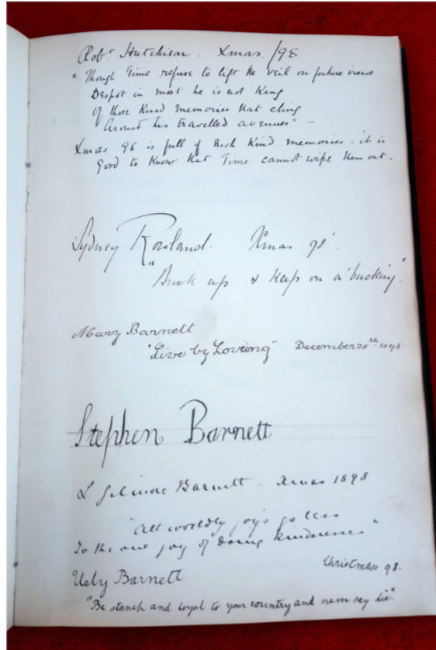 Robt Hutchison. Xmas. /98
"Though Time refuse to lift the veil on future views
Despot in that he is not King
Of those Kind memories that cling
Around his travelled avenues" –
Xmas 98 is full of such Kind memories. it is
good to Know that Time cannot wipe them out.
Sydney Rowland. Xmas 98'.
"Buck up & Keep on a'bucking"
Mary Barnett
"Live by Loving" December 1898
Stephen Barnett
L Gilmore Barnett – Xmas 1898
"All worldly joys go less
To the one joy of doing kindnesses"
Christmas 98.
Barnett
"Be stanch and loyal to your country and never say die".